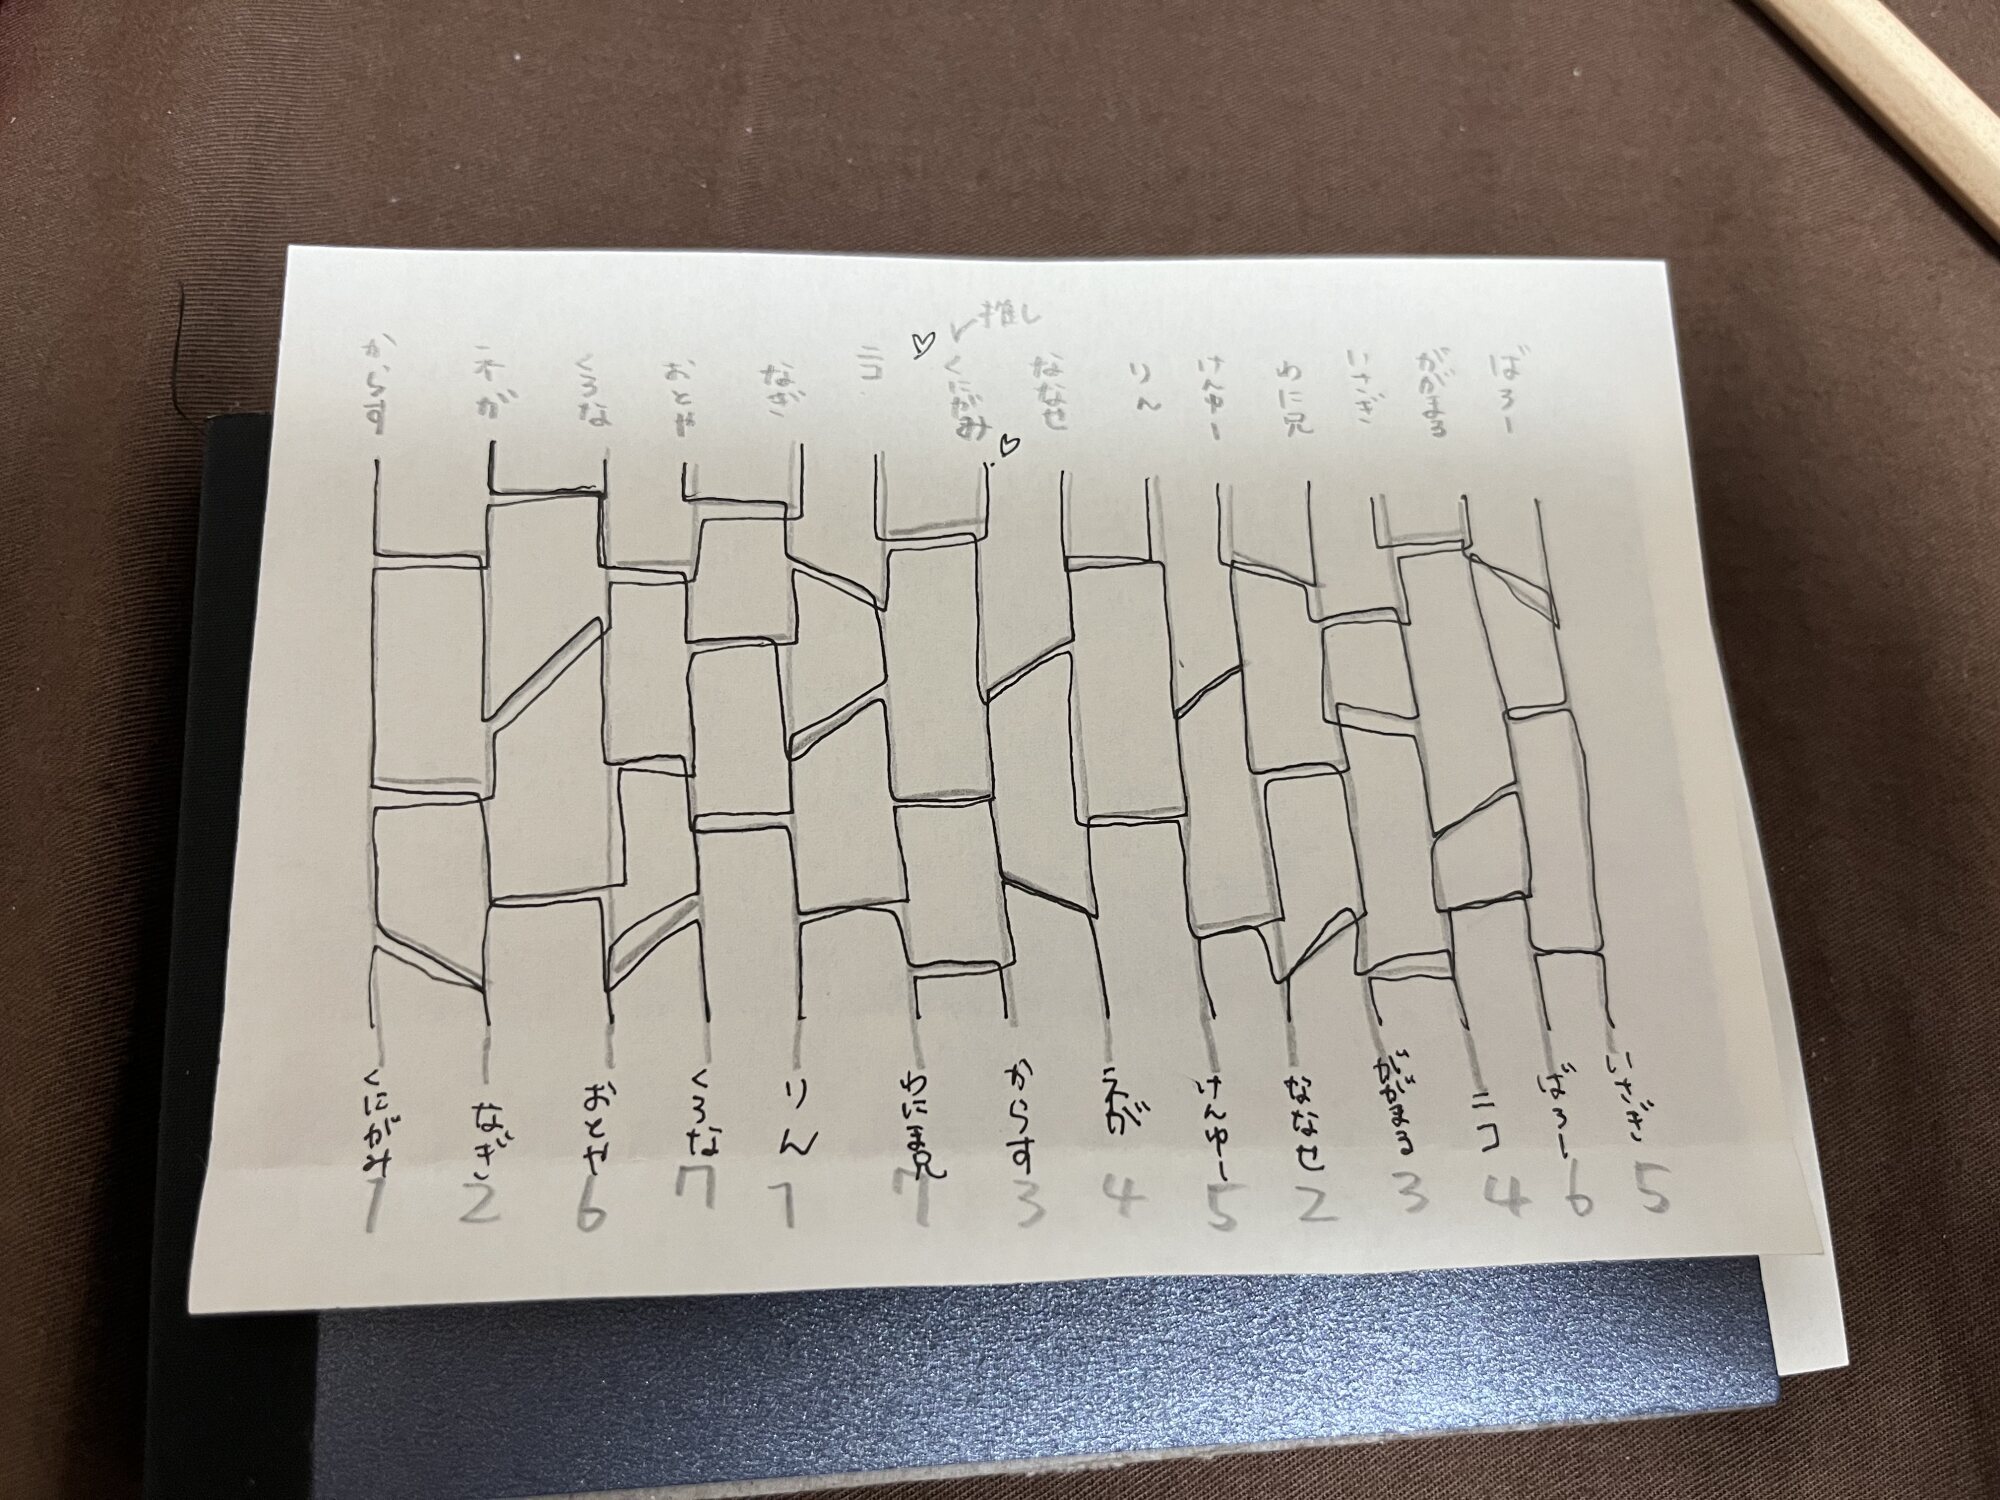 推し
からす
えが
くろな
おとや
なぎ
ニコ
くにがみ
ななせ
りん
けんゆー
わに兄
いさぎ
ががまる
ばろー
くにがみ
なぎ
おとや
くろな
りん
わにま兄
からす
えが
けんゆー
ななせ
ががまる
ニコ
ばろー
いさぎ
1
2
6
7
1
7
3
4
5
2
3
4
6
5